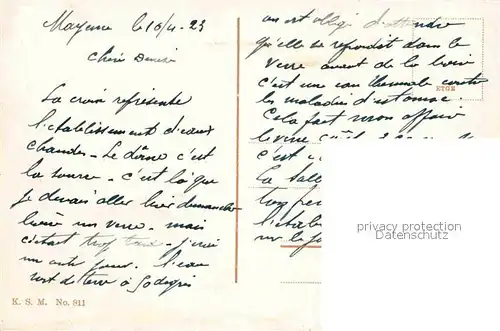 Mayence le 10/4-23
Chère Denise
La croix représente
l'etablissement d'eaux
chaudes - Le dôme c'est
la source - c'est là que
je devais aller hier dimanche
boire un verre - mais
c'était trop tard - j'irai
un autre jour. l'eau
sort de terre à 60 degrés
K. S. M. No. 811
on est obligé d'attendre
qu'elle se refroidit dans le
verre avant de la boire
c'est une eau thermale contre
les maladies d'estomac.
Cela fait mon affaire
le verre coûte
c'est
La salle
trop
l'établ
sur la
ETGE
privacy protection
Datenschutz